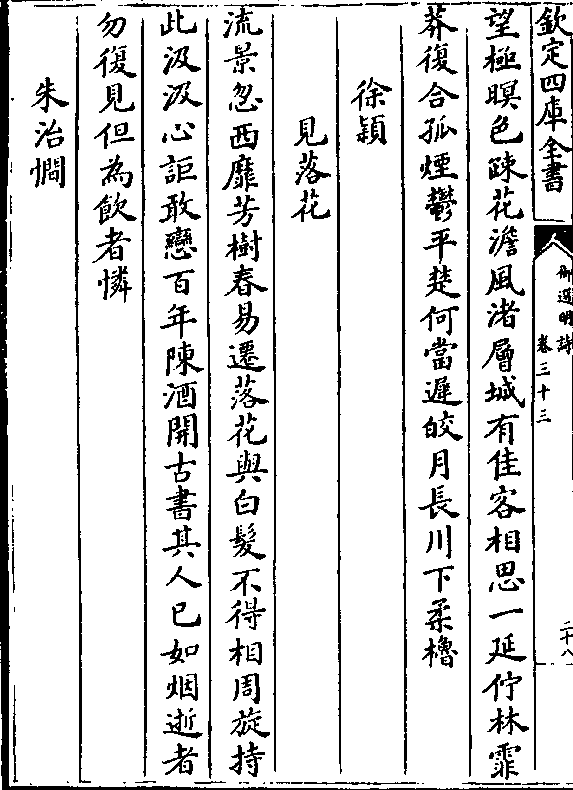 欽定四庫全書
御選明詩
卷三十三
二十八
望極暝色疎花澹風渚層城有佳客相思一延佇林霏
莽復合孤煙鬱平楚何當遲皎月長川下柔櫓
徐穎
見落花
流景忽西靡芳樹春易遷落花與白髮不得相周旋持
此汲汲心詎敢戀百年陳酒開古書其人已如烟逝者
勿復見但為飲者憐
朱治憪